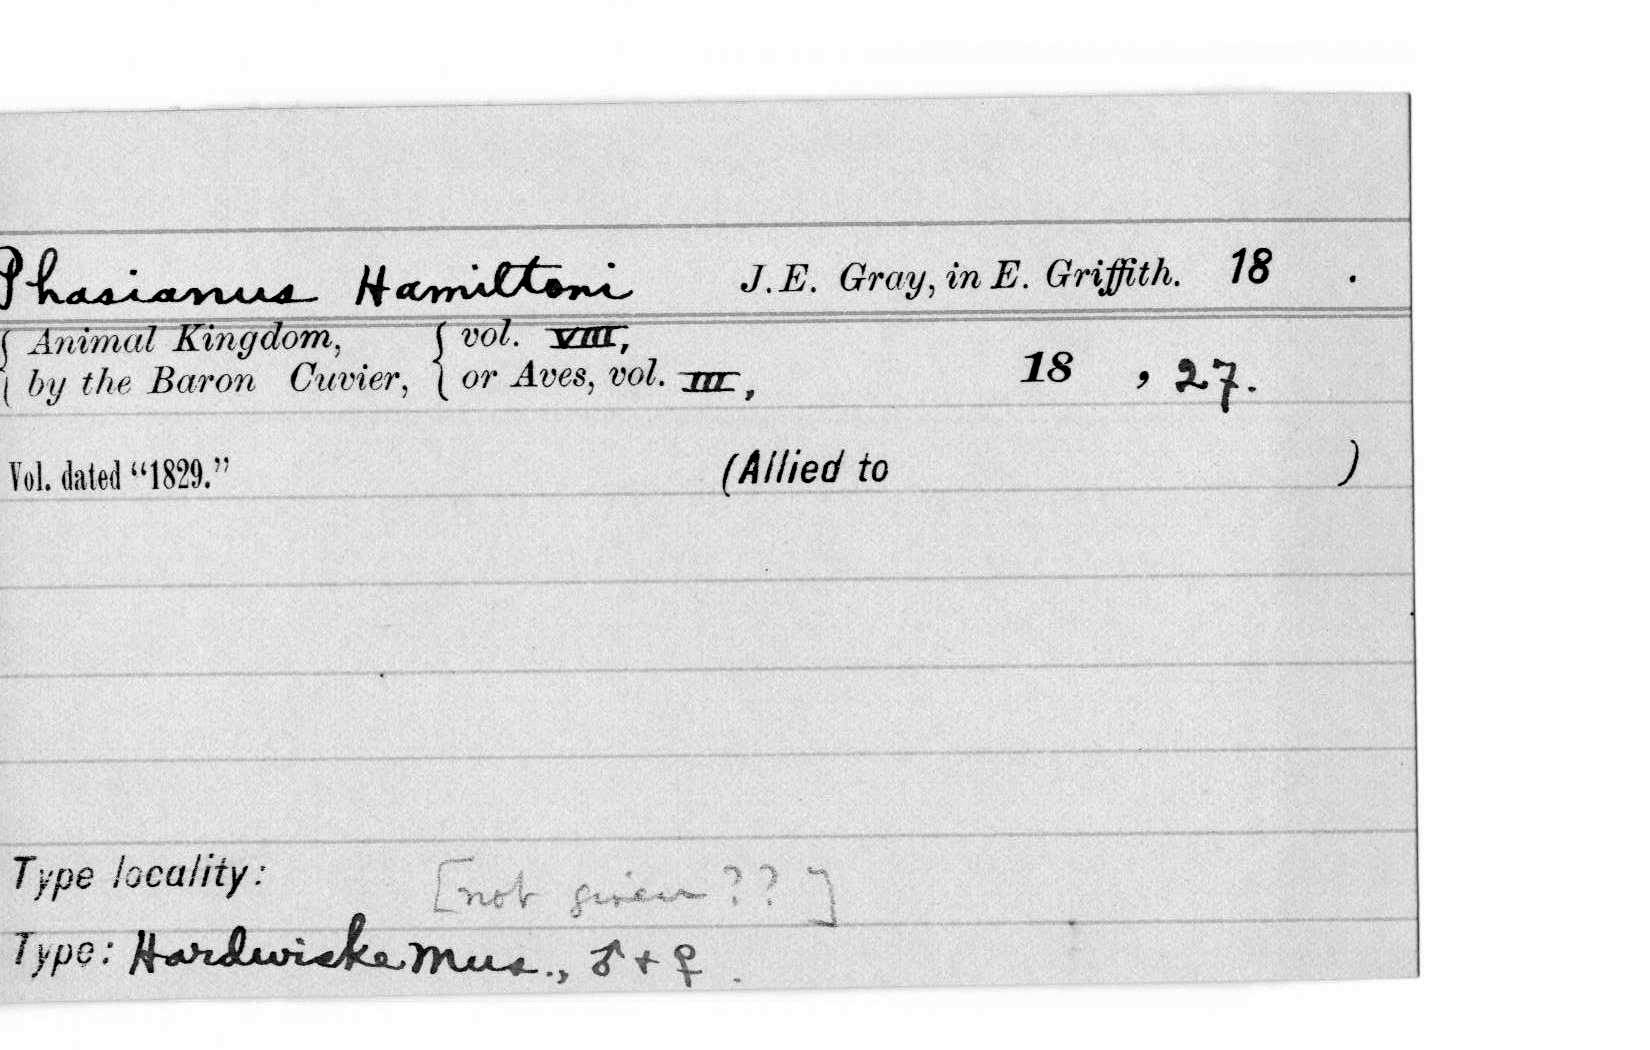 Phasianus Hamiltoni J.E. Gray, in E. Griffith. 18 .
{ Animal Kingdom, { vol. VIII,
{ by the Baron Cuvier, { or Aves, vol. III, 18 , 27.
Vol. dated “1829.” (Allied to )
Type locality: [not given ??]
Type: Hardwicke Mus., ♂ + ♀ .